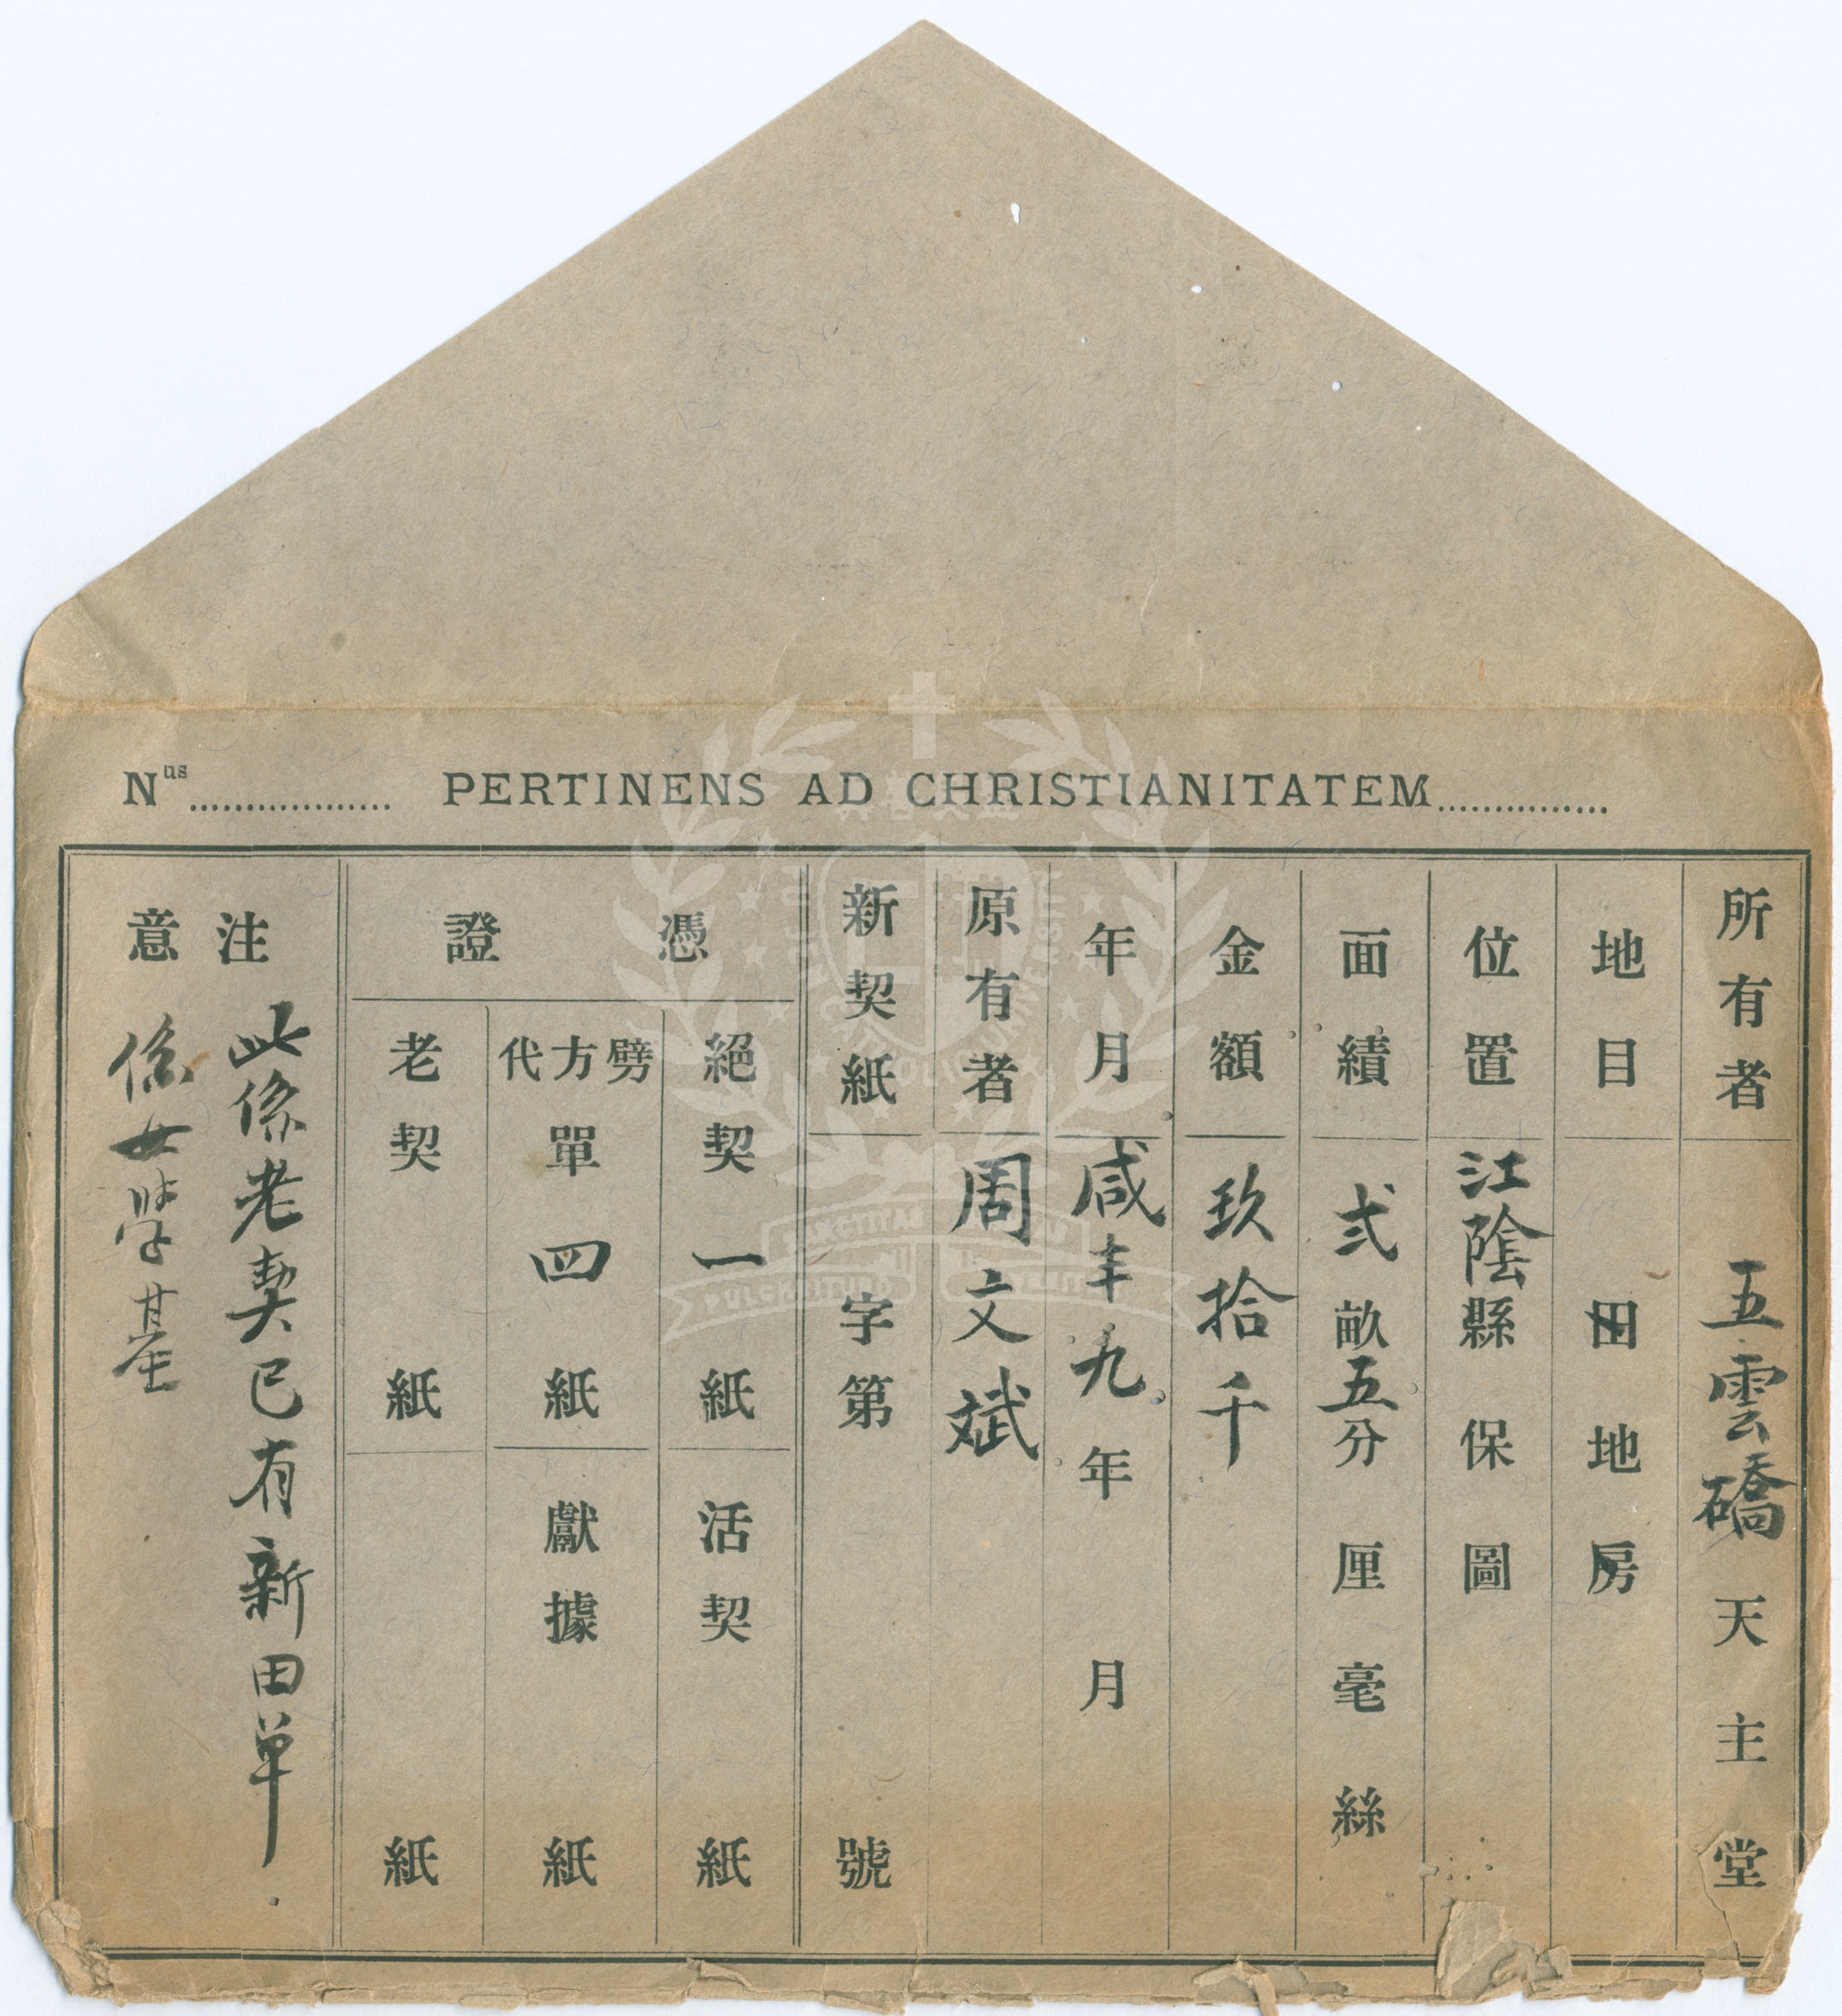 Nus.................. PERTINENS AD CHRISTIANITATEM...............
所有者 五雲礄天主堂
地目 田地房
位置 江陰縣保圖
面績 弍畝五分厘毫絲
金額 玖拾千
年月 咸丰九年月
原有者 周文斌
新契紙 字第號
憑證
絕契一紙 活契紙
劈方代單四紙 獻據紙
老契紙 紙
注意
此係老契已有新田单
係女学基